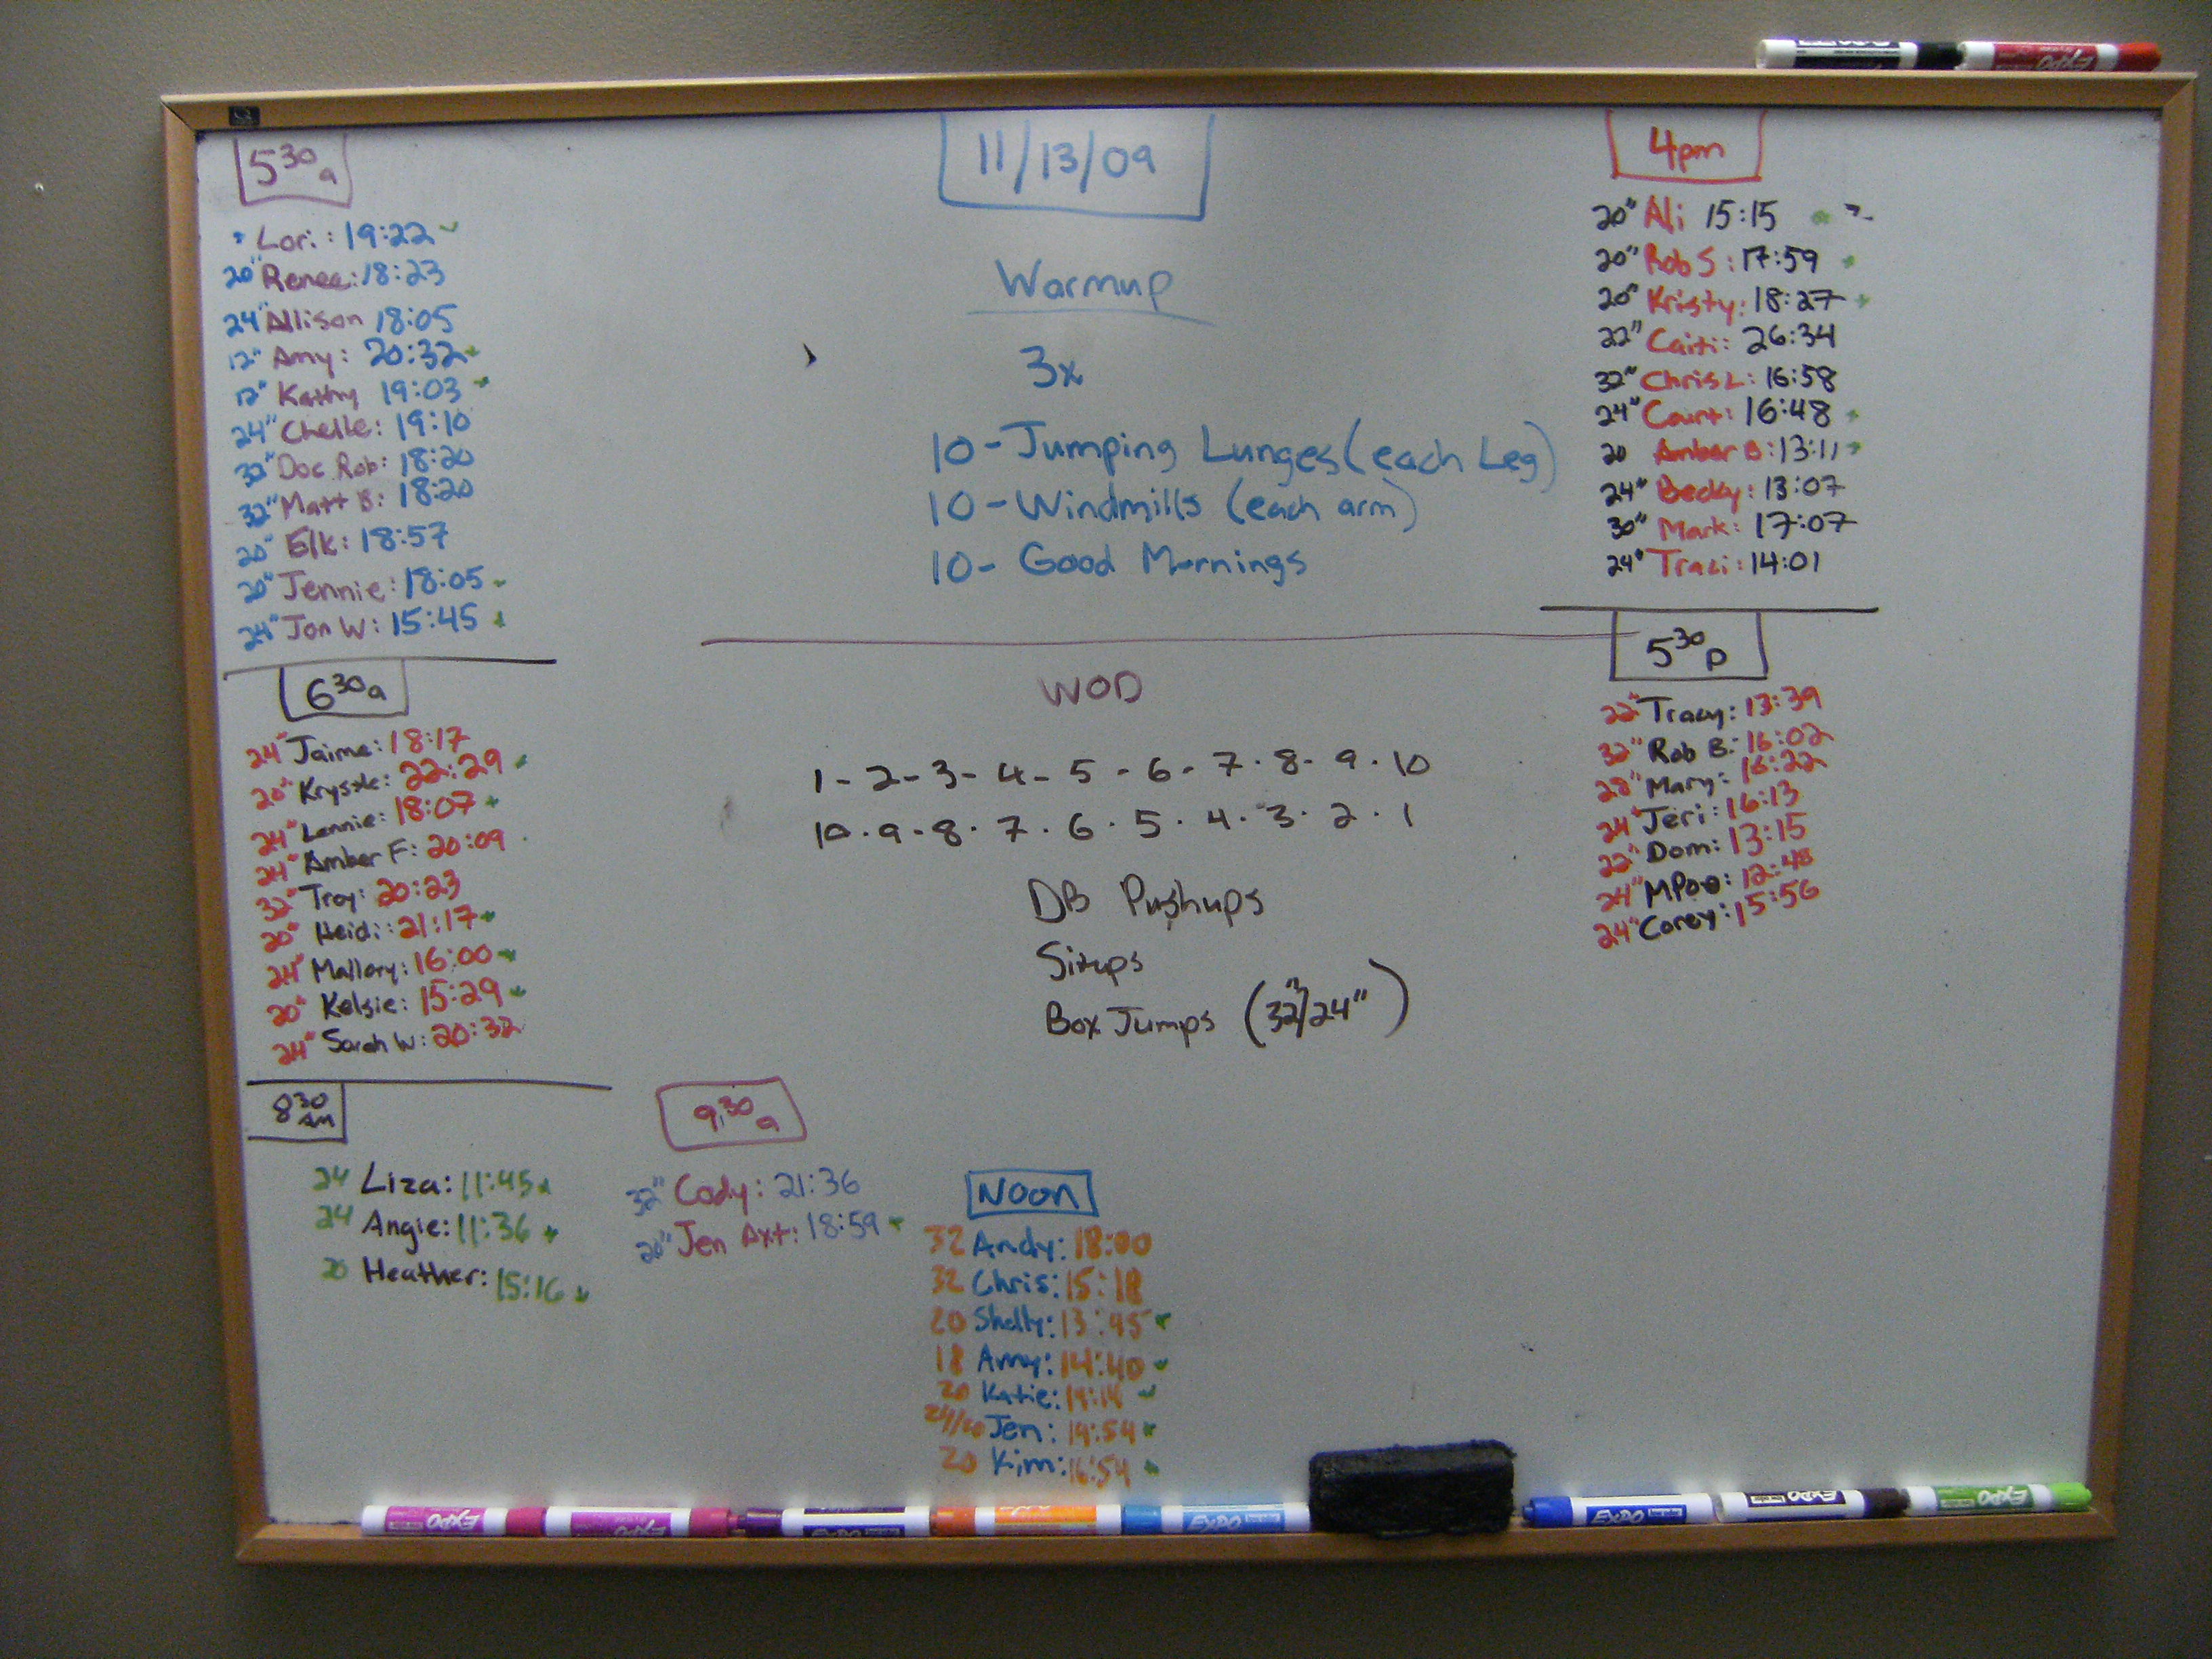 11/13/09
Warmup
3x
10-Jumping Lunges (each Leg)
10-Windmills (each arm)
10- Good Mornings
WOD
1-2-3-4-5-6-7-8-9-10
10-9-8-7-6-5-4-3-2-1
DB Pushups
Situps
Box Jumps (32"/24")
5 30 a
Lori: 19:22
20" Renee: 18:23
24" Allison 18:05
12" Amy: 20:32
12" Kathy 19:03
24" Chelle: 19:10
32" Doc Rob: 18:20
32" Matt B: 18:20
20" Elk: 18:57
20" Jennie: 18:05
24" Jon W: 15:45
6 30 a
24" Jaime: 18:17
20" Krystle: 22:29
24" Lennie: 18:07
24" Amber F: 20:09
32" Troy: 20:23
20" Heidi: 21:17
24" Mallory: 16:00
20" Kelsie: 15:29
24" Sarah W: 20:32
8 30 am
24 Liza: 11:45
24 Angie: 11:36
20 Heather: 15:16
9:30 a
32" Cody: 21:36
20" Jen Axt: 18:59
Noon
32 Andy: 18:00
32 Chris: 15:18
20 Shelly: 13:45
18 Amy: 14:40
20 Katie:
Jen: 19:54
20 Kim: 16:54
4pm
20" Ali 15:15
20" Rob S: 17:59
20" Kristy: 18:27
22" Caiti: 26:34
32" Chris L: 16:58
24" Court: 16:48
20 Amber B: 13:11
24" Becky: 13:07
30" Mark: 17:07
24" Traci: 14:01
5 30 p
22" Tracy: 13:39
32" Rob B: 16:02
22" Mary: 16:22
24" Jeri: 16:13
22" Dom: 13:15
24" 12:48
24" Corey: 15:56
EXPO
EXPO
EXPO
EXPO
EXPO
EXPO
EXPO